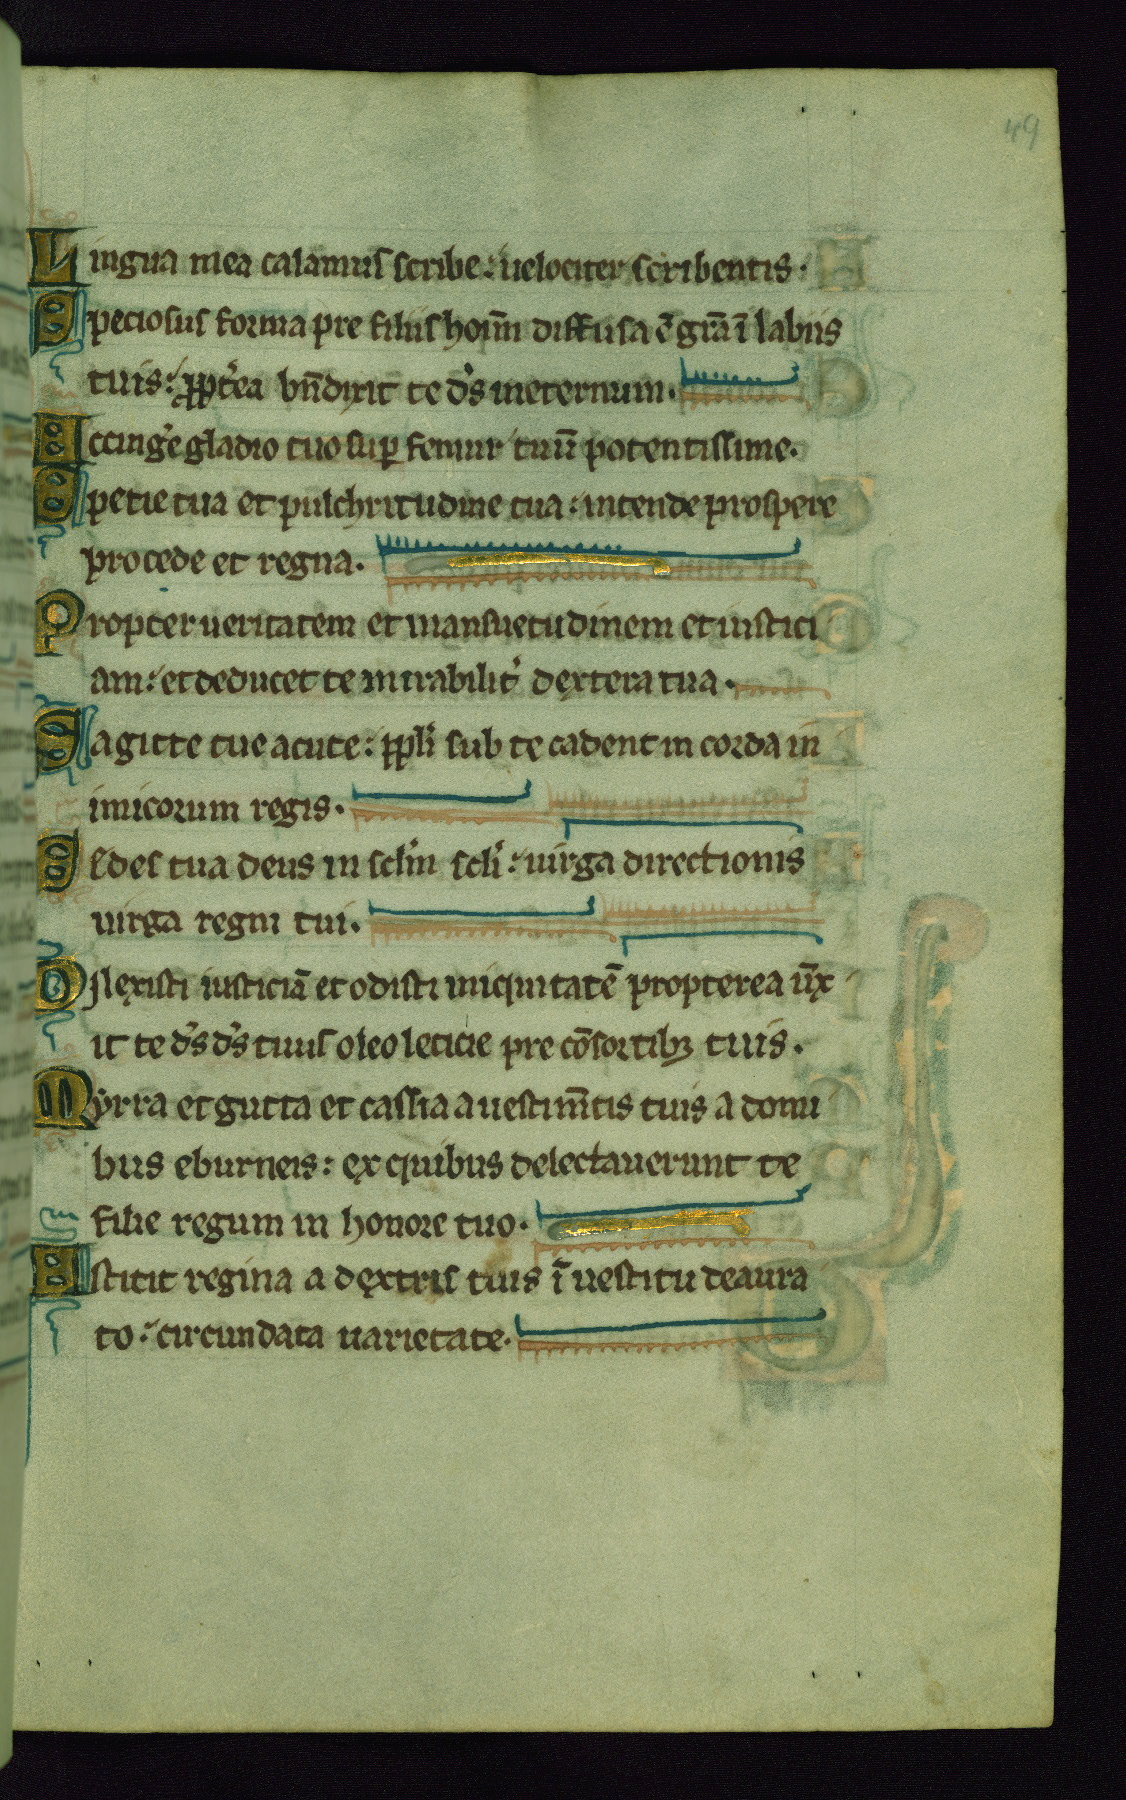 49
Lingua mea calamus scribe: uelociter scribentis.
Speciosus forma pre filiis hoīm diffusa ē grā ī labiis
tuis: ꝓpt̉ea bn̄dixit te d̉s ineternum.
Accinge̾ gladio tuo suꝑ femur tuū potentissime.
Spetie tua et pulchritudine tua: intende prospere
procede et regna.
Propter ueritatem et mansuetudinem et iustici
am: et deducet te mirabilit̉ dextera tua.
Sagitte tue acute: ppl̉i sub te cadent in corda in
imicorum regis.
Sedes tua deus in scl̉m scl̉i: uirga directionis
uirga regni tui.
Dilexisti iusticiā et odisti iniquitatē propterea ūx
it te d̉s d̉s tuus oleo leticie pre cōsortibꝫ tuis.
Myrra et gutta et cassia a uestim̄tis tuis a domi
bus eburneis: ex quibus delectauerunt te
filie regum in honore tuo.
Astitit regina a dextris tuis ī uestitu deaura
to: circumdata uarietate.